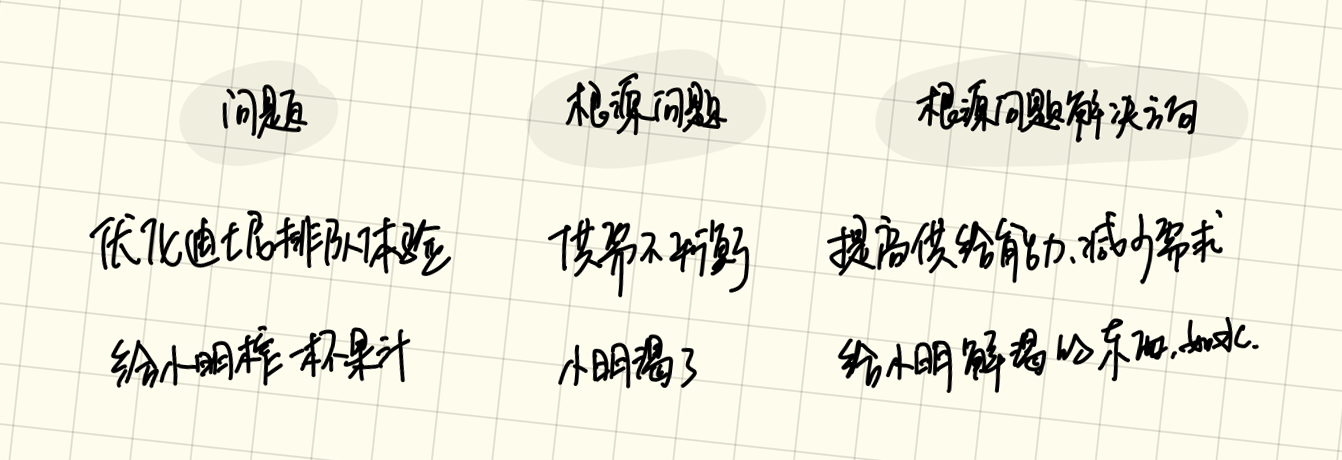 问题 根源问题 根源问题解决方向
优化迪士尼排队体验 供需不平衡 提高供给能力、减少需求
给小明榨一杯果汁 小明渴了 给小明解渴的东西,如水.